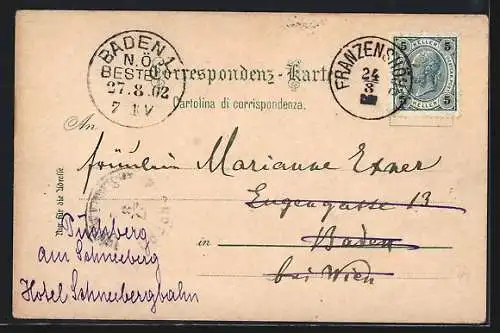 BADEN 1
N.Ö.
BESTELLT
27.8.02
7 IV
Correspondenz-Karte
Cartolina di corrispondenza.
FRANZENSHÖHE
24
8
5 5
HELLER HELLER
5 5
An
Fräulein Marianne Exner
Eugengasse 13
in Baden
bei Wien
Nur für die Adresse
Puchberg
am Schneeberg
Hotel Schneebergbahn